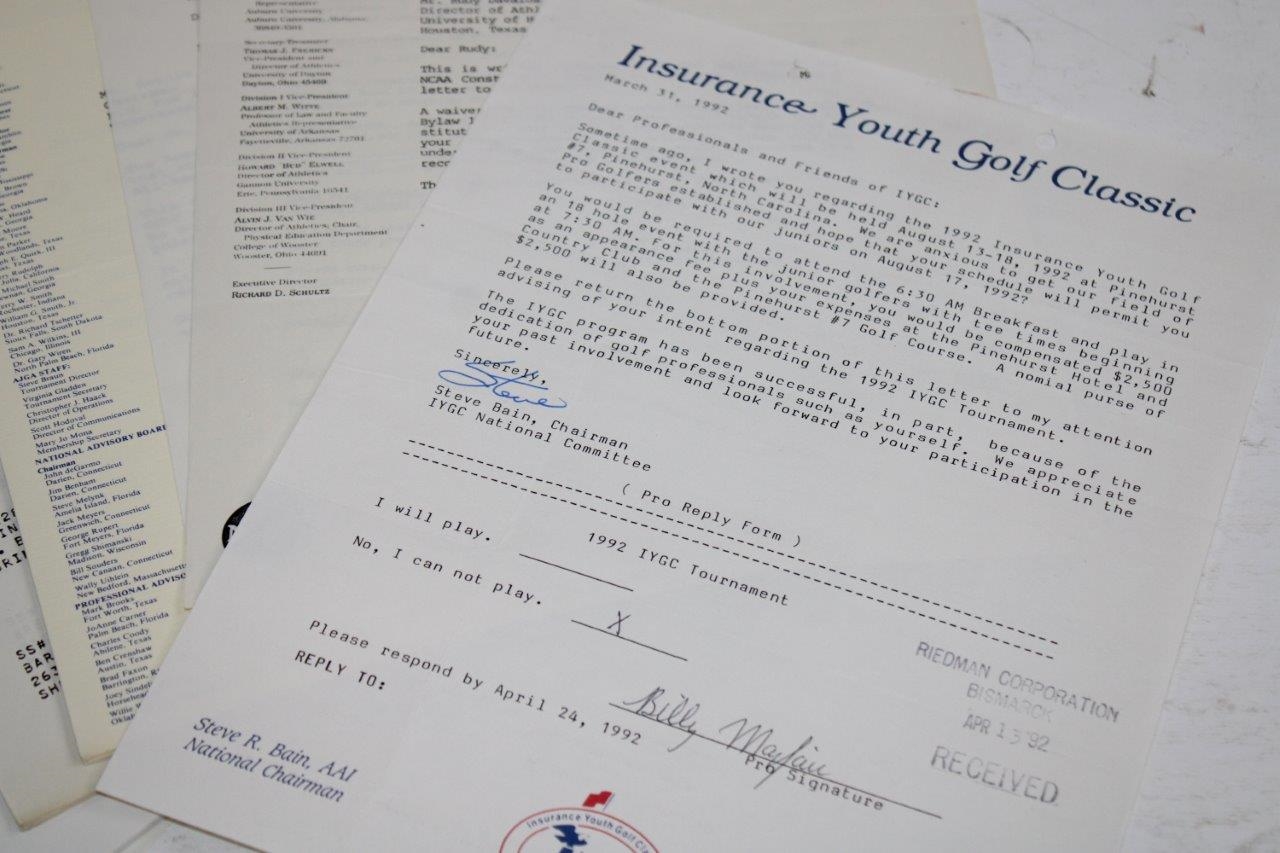 Insurance Youth Golf Classic
March 31, 1992
Dear Professionals and Friends of IYGC:
Sometime ago, I wrote you regarding the 1992 Insurance Youth Golf
Classic event which will be held August 13-18, 1992 at Pinehurst
#7, Pinehurst, North Carolina. We are anxious to get our field of
Pro Golfers established and hope that your schedule will permit you
to participate with our juniors on August 17, 1992?
You would be required to attend the 6:30 AM Breakfast and play in
an 18 hole event with the junior golfers with tee times beginning
at 7:30 AM. For this involvement, you would be compensated $2,500
as an appearance fee plus your expenses at the Pinehurst Hotel and
Country Club and the Pinehurst #7 Golf Course. A nomial purse of
$2,500 will also be provided.
Please return the bottom portion of this letter to my attention
advising of your intent regarding the 1992 IYGC Tournament.
The IYGC program has been successful, in part, because of the
dedication of golf professionals such as yourself. We appreciate
your past involvement and look forward to your participation in the
future.
Sincerely,
Steve
Steve Bain, Chairman
IYGC National Committee
( Pro Reply Form )
1992 IYGC Tournament
I will play.
No, I can not play. X
Please respond by April 24, 1992
Billy Mayfair
Pro Signature
REPLY TO:
Steve R. Bain, AAI
National Chairman
RIEDMAN CORPORATION
BISMARCK
APR 13 '92
RECEIVED
Insurance Youth Golf Cla
Auburn University
Auburn University, Alabama
Secretary-Treasurer
Vice-President and
Director of Athletics
University of Dayton
Dayton, Ohio 45469
Division I Vice-President
ALBERT M. WITTE
Professor of Law and Faculty
Athletics Representative
University of Arkansas
Fayetteville, Arkansas 72701
Division II Vice-President
HOWARD "BUD" ELWELL
Director of Athletics
Gannon University
Erie, Pennsylvania 16541
Division III Vice-President
ALVIN J. VAN WIE
Director of Athletics, Chair,
Physical Education Department
College of Wooster
Wooster, Ohio 44691
Executive Director
RICHARD D. SCHULTZ
Director of Athl
University of H
Houston, Texas
Dear Rudy:
This is wr
NCAA Const
letter to
A waiver
Bylaw
stitut
your
unde
reco
Th
William G. Smith, Jr.
Houston, Texas
Dr. Richard Tschetter
Sioux Falls, South Dakota
Sam A. Wilkins, III
Chicago, Illinois
Dr. Gary Wiren
North Palm Beach, Florida
AJGA STAFF:
Steve Braun
Tournament Director
Virginia Gladden
Tournament Secretary
Christopher J. Haack
Director of Operations
Scott Hodoval
Director of Communications
Mary Jo Mona
Membership Secretary
NATIONAL ADVISORY BOARD
Chairman
John deGarmo
Darien, Connecticut
Jim Benham
Darien, Connecticut
Steve Melnyk
Amelia Island, Florida
Jack Meyers
Greenwich, Connecticut
George Rupert
Fort Meyers, Florida
Gregg Shimanski
Madison, Wisconsin
Bill Souders
New Canaan, Connecticut
Wally Uihlein
New Bedford, Massachusett
PROFESSIONAL ADVISO
Mark Brooks
Fort Worth, Texas
JoAnne Carner
Palm Beach, Florida
Charles Coody
Abilene, Texas
Ben Crenshaw
Austin, Texas
Brad Faxon
Barrington, R
Joey Sindel
Horsehead
Willie
Oklah
SS#
BAR
267
SH